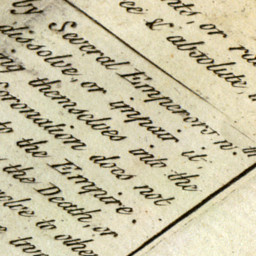 nts, or
ee & absolute,
by Several Emperors,
dissolve, or impair it
themselves into the
Coronation does not
to the Empire.
the Death, or
to other